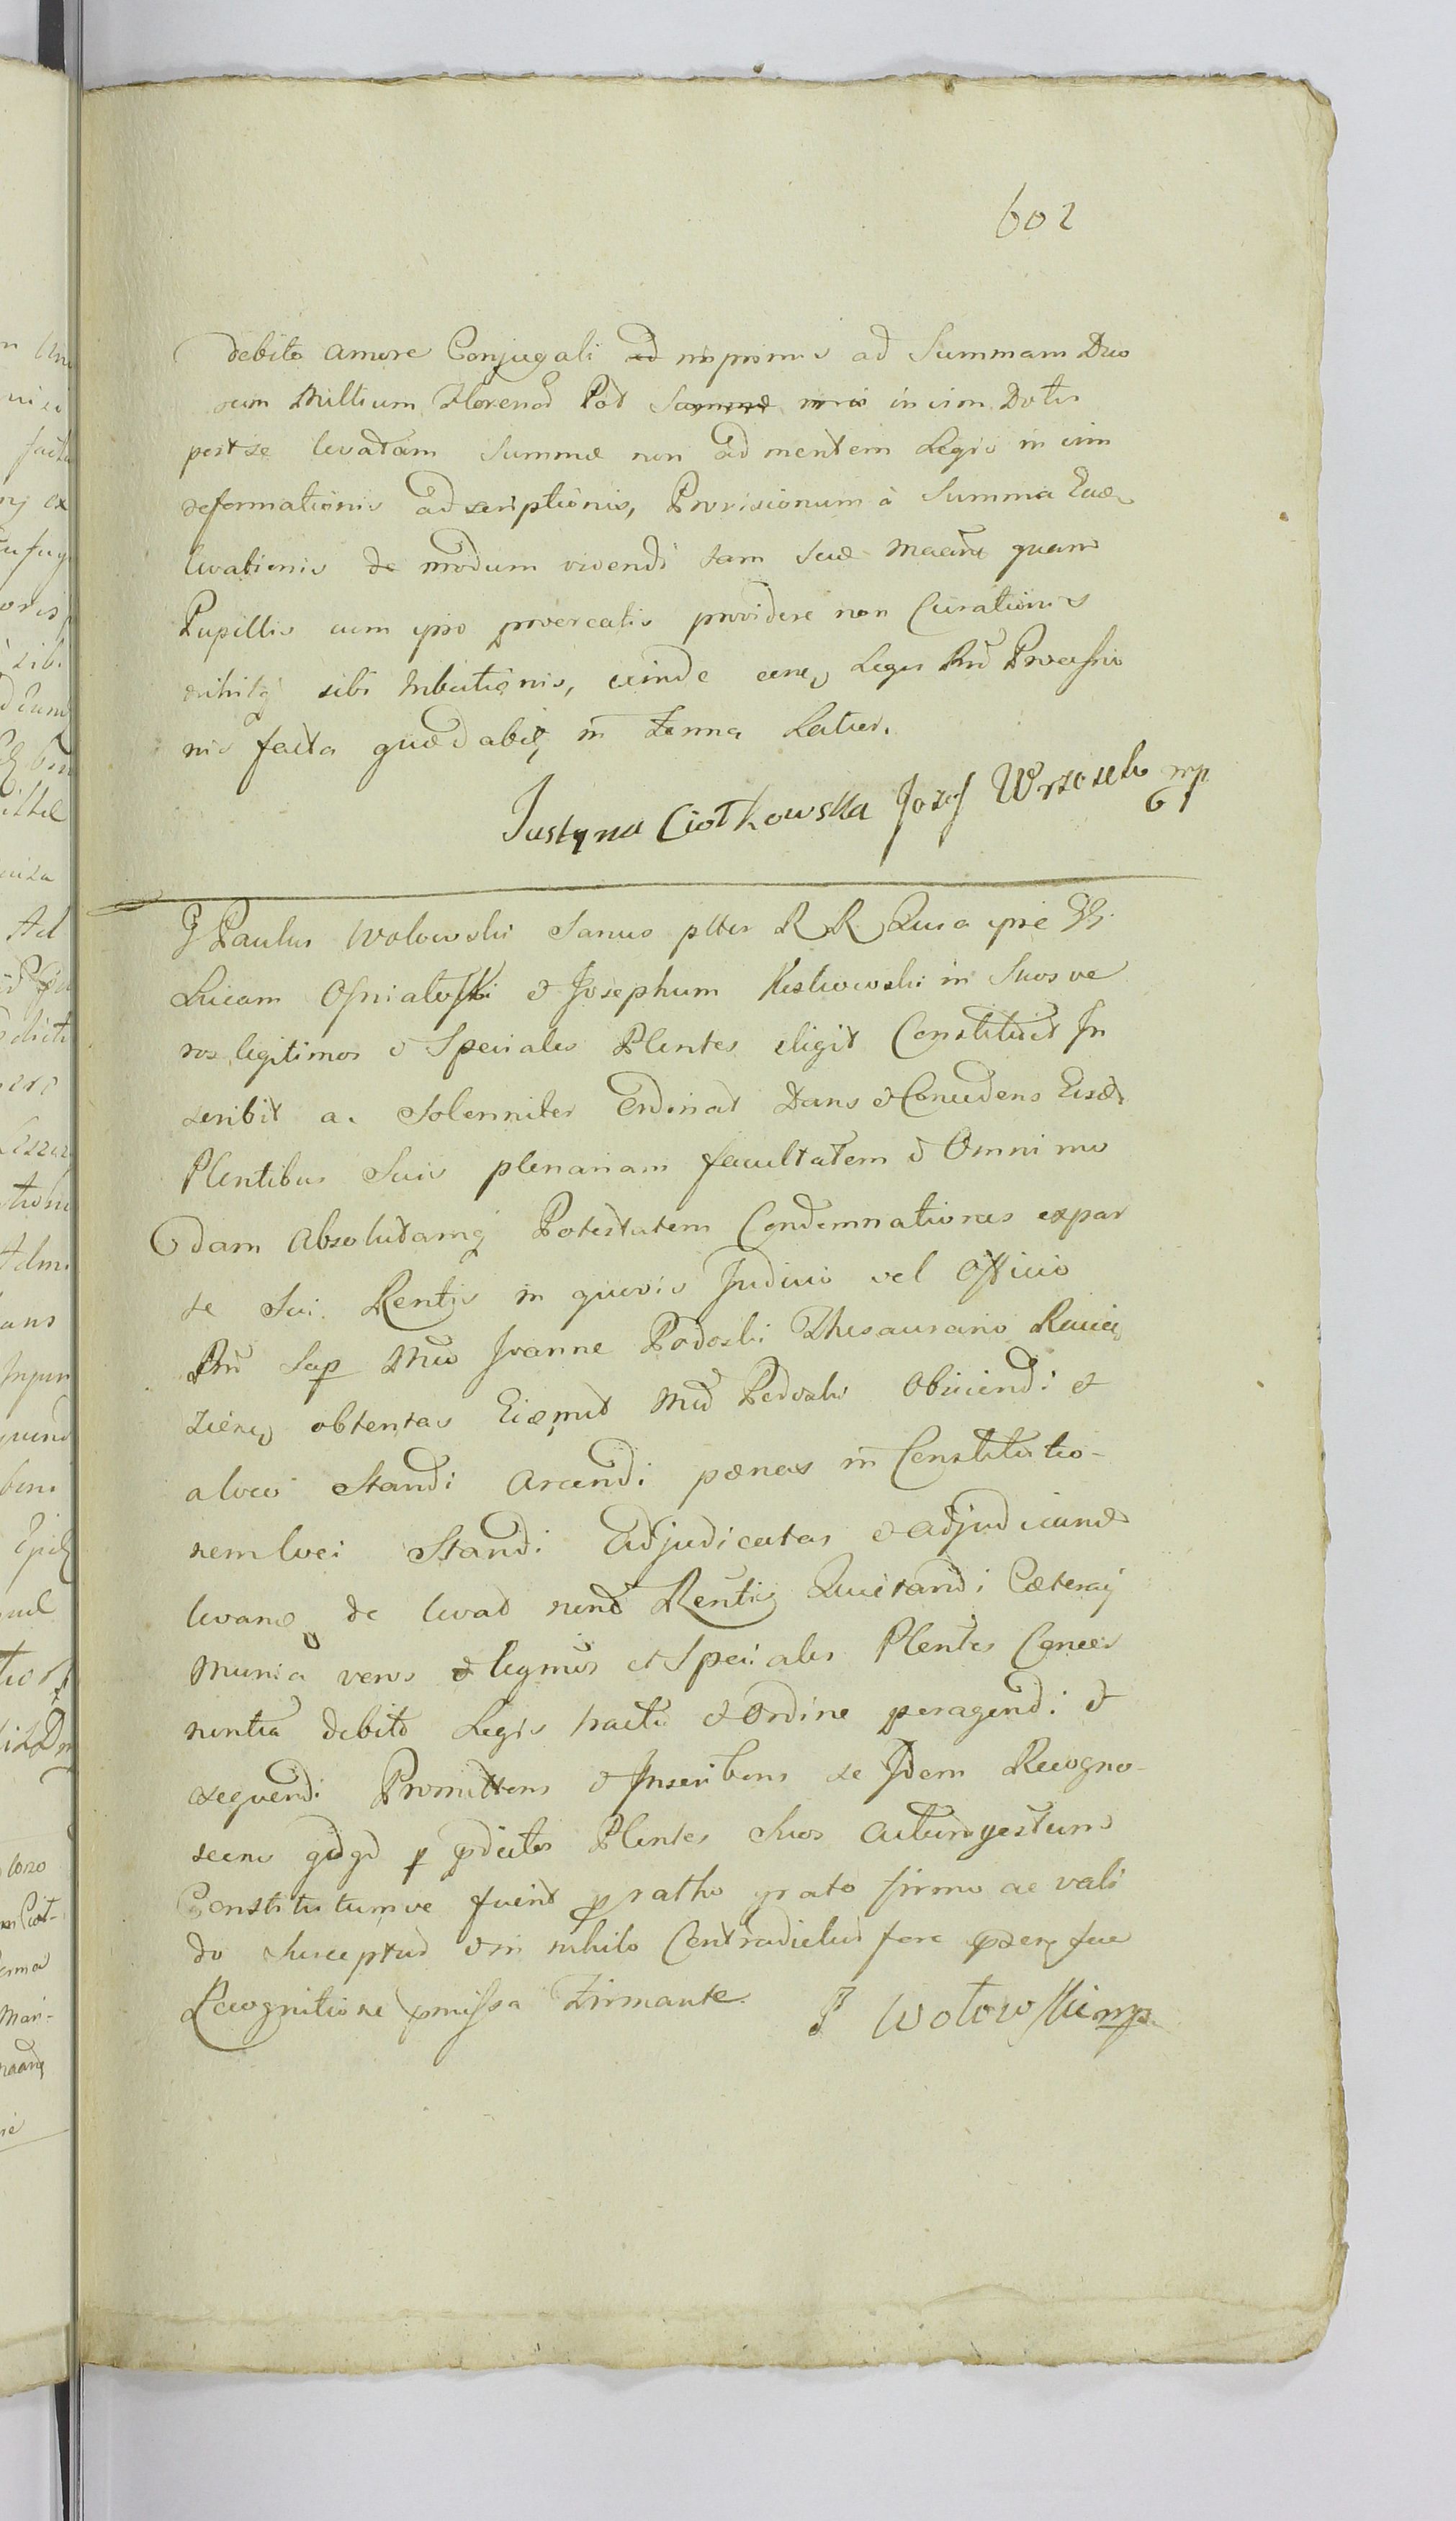 602
debito amore Conjugali imprimis ad Summam Duo
rum Millium Florenod Pol in vim Dotis
post se levatam Summæ non ad mentem Legis in vim
reformationis adscriptionis, Provisionum à Summa Ead
levationis de modum vivendi tam suæ quam
Pupillis cum ipso procreatis providere non Curationis
nihilq sibi tributionis, Leges
nis facta quæd in Ratur.
Justyna Ciołkowska Jozef Wrzosek mp
G Paulus Wolowski Sanus ptter R R Quia ipse GG.
Lucam Ośniałoski et Josephum Kisliwoski in Suos ve
ros legitimos et Speciales Plentes eligit Constituit In
scribit ac Solenniter Ordinat Dans et Concedens Eisd
Plentibus Suis plenariam facultatem et Omnimo
dam Absolutamq Potestatem Condemnationes expar
te Sui Rentis in quovis Judicio vel Officio
Sup Mco Joanne Podoski Thesaurario
obtentas Mco Podoski Obiiciendi et
a loco Standi Arcendi pœnas in Constitutio-
nem loci Standi Adjudicatas et adjudicand
levand de levat Rentis Quietandi Cæteraq
munia veros et legmos et Speciales Plentes Concer
nentia debito Legis tractu et Ordine peragendi et
exequendi Promittens et Inscribens se Idem Recogno-
scens qdqd p pdictos Plentes Suos actum gestum
Constitutumve fuerit p ratho grato firmo ac vali
do Suscepturum in nihilo Contradicturum fore sua
Recognitione pmissa Firmante. P Wołowski mp